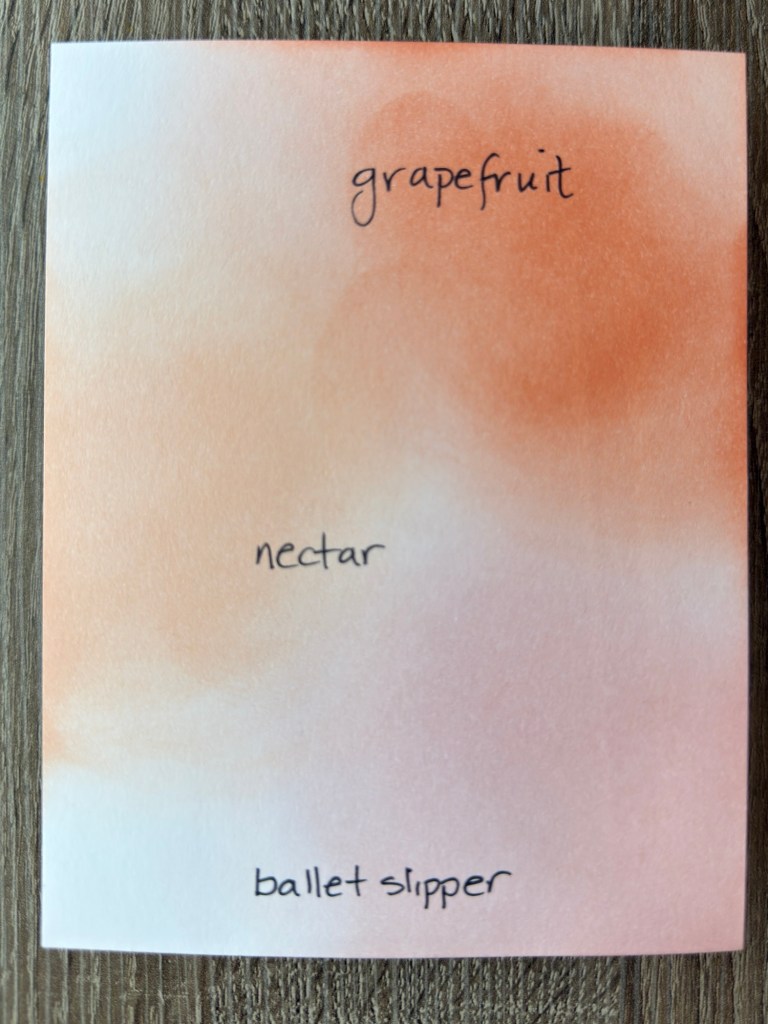 grapefruit
nectar
ballet slipper